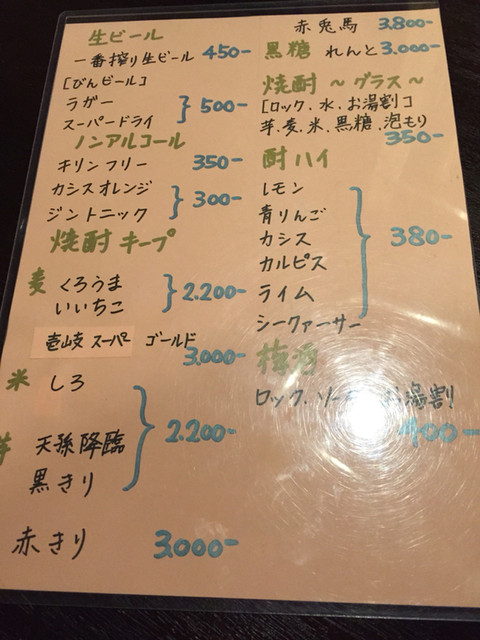 生ビール
一番搾り生ビール 450-
[びんビール]
ラガー
スーパードライ
500-
ノンアルコール
キリンフリー 350-
カシスオレンジ
ジントニック
300-
焼酎 キープ
麦 くろうま
いいちこ
2.200-
壱岐 スーパー ゴールド
3.000-
米 しろ
芋 天孫降臨
黒きり
2.200-
赤きり 3.000-
赤兎馬 3.800-
黒糖 れんと 3.000-
焼酎 ～グラス～
[ロック.水.お湯割]
芋.麦.米.黒糖.泡もり
350-
酎ハイ
レモン
青りんご
カシス
カルピス
ライム
シークァーサー
380-
梅酒
ロック. お湯割
400-